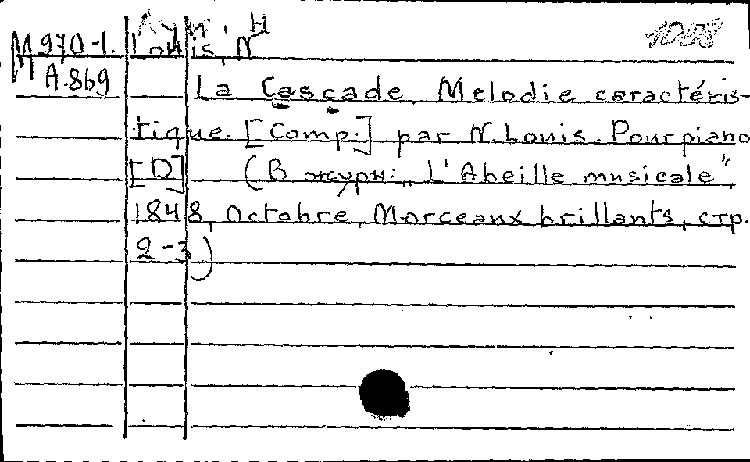 Луи, Н
М 970-1. Louis, N 1028
М А.869 La Cascade. Melodie caractéris-
tique. [Comp.] par N. Louis. Pour piano
[D] (В журн: „L'Abeille musicale"
1848, Octobre, Morceaux brillants, стр.
2-3)